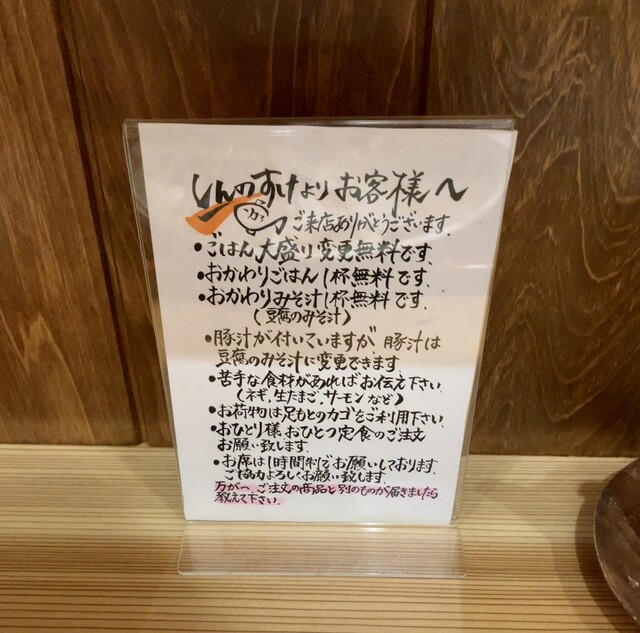 しんのすけより お客様へ
ご来店ありがとうございます.
・ごはん大盛り変更無料です.
・おかわりごはん1杯無料です.
・おかわりみそ汁1杯無料です.
(豆腐のみそ汁)
・豚汁が付いていますが 豚汁は
豆腐のみそ汁に変更できます.
・苦手な食材があればお伝え下さい.
(ネギ、生たまご、サーモンなど)
・お荷物は足もとのカゴをご利用下さい.
・おひとり様 おひとつ定食のご注文
お願い致します.
・お席は1時間制でお願いしております.
ご協力よろしくお願い致します.
万が一、ご注文の商品と別のものが届きましたら
教えて下さい.